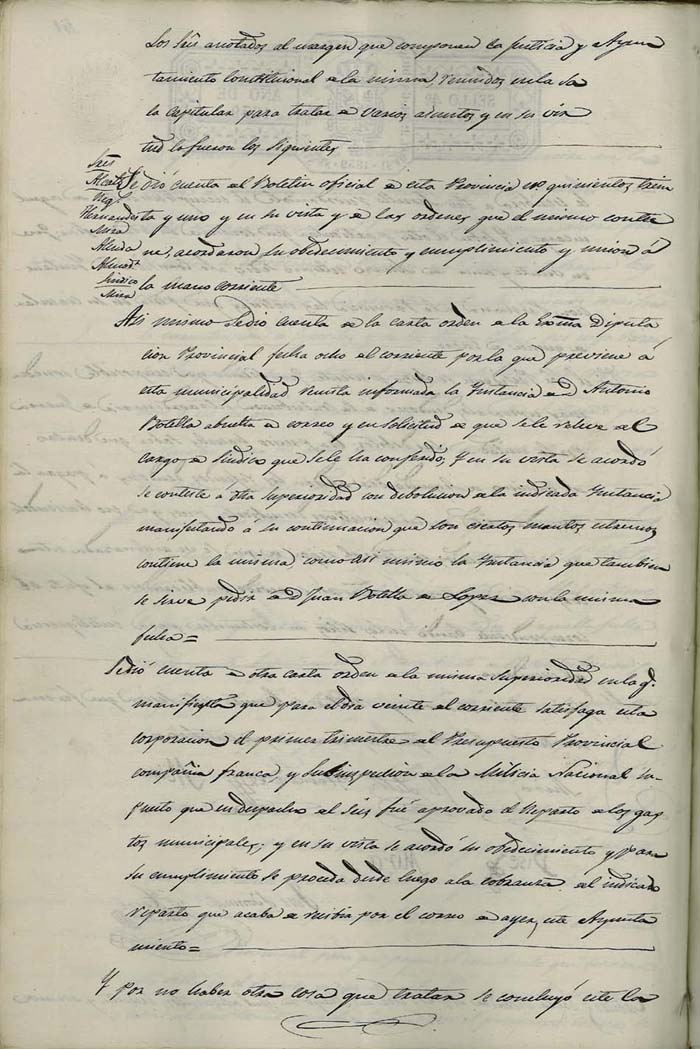 Los Srs anotados al margen que componen la Justicia y Ayun
tamiento Constitucional de la misma, reunidos en la sa
la capitular para tratar de varios asuntos y en su vir
tud lo fueron los siguientes
Srs
Alcalde
Reg.
Hernandez
Mira
Sindico
Mira
Se dió cuenta del Boletin oficial de esta Provincia nº quinientos trein
ta y uno y en su vista y de las ordenes que el mismo contie
ne, acordaron su obedecimiento y cumplimiento y union á
la mano corriente
Asi mismo Se dio cuenta de la carta orden de la Exma Diputa
cion Provincial fecha ocho del corriente por la que previene á
esta municipalidad remita informada la Instancia de D Antonio
Botella abuelta de correo y en solicitud de que se le releve del
cargo de Sindico que se le ha conferido; Y en su vista se acordó
se conteste á dha superioridad con debolucion de la indicada Instancia
manifestando á su continuacion que son ciertos cuantos estremos
contiene la misma, como asi mismo la Instancia que tambien
se sirve pedir de D Juan Botella de Lopez con la misma
fecha=
Se dió cuenta de otra carta orden de la misma Superioridad en la q.
manifiesta que para el dia veinte del corriente satisfaga esta
corporacion el primer trimestre del Presupuesto Provincial
compañia franca, y Subinspeccion de la Milicia Nacional su
puesto que en despacho del seis fué aprovado el reparto de los gas
tos municipales; y en su vista se acordó su obedecimiento y para
su cumplimiento se proceda desde luego a la cobranza del indicado
reparto que acaba de recibir por el correo de ayer, este Ayunta
miento=
Y por no haber otra cosa que tratar se concluyó este la